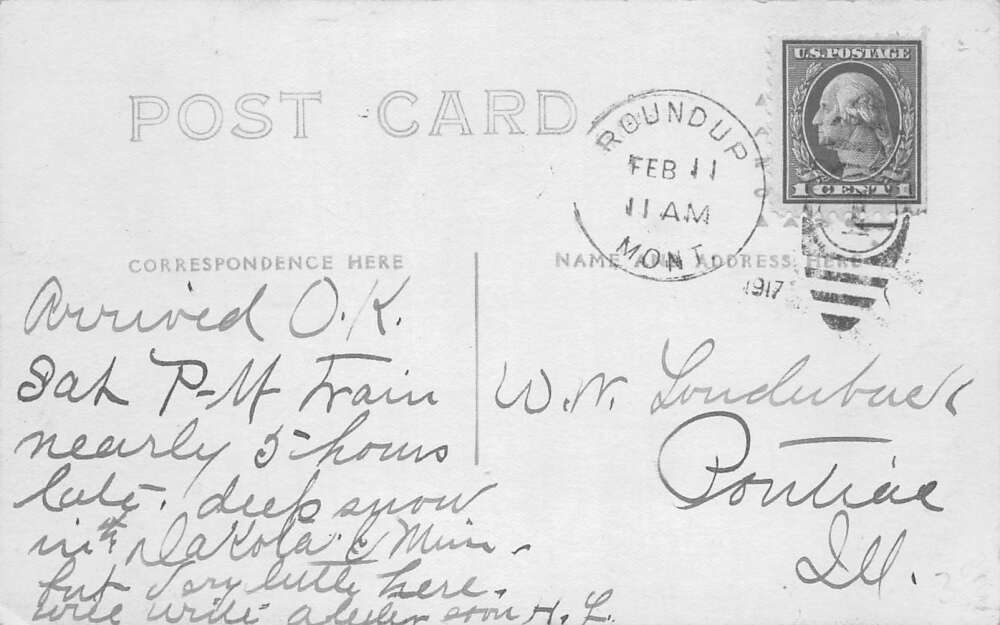 POST CARD
U.S. POSTAGE
1 CENT 1
ROUNDUP
FEB 11
11 AM
MONT.
1917
CORRESPONDENCE HERE
NAME AND ADDRESS HERE
Arrived O.K.
Sat P-M Train
nearly 5 hours
late. deep snow
in Dakota & Minn.
but Very little here.
will write a letter soon H. L.
W. N. Louderback
Pontiac
Ill.